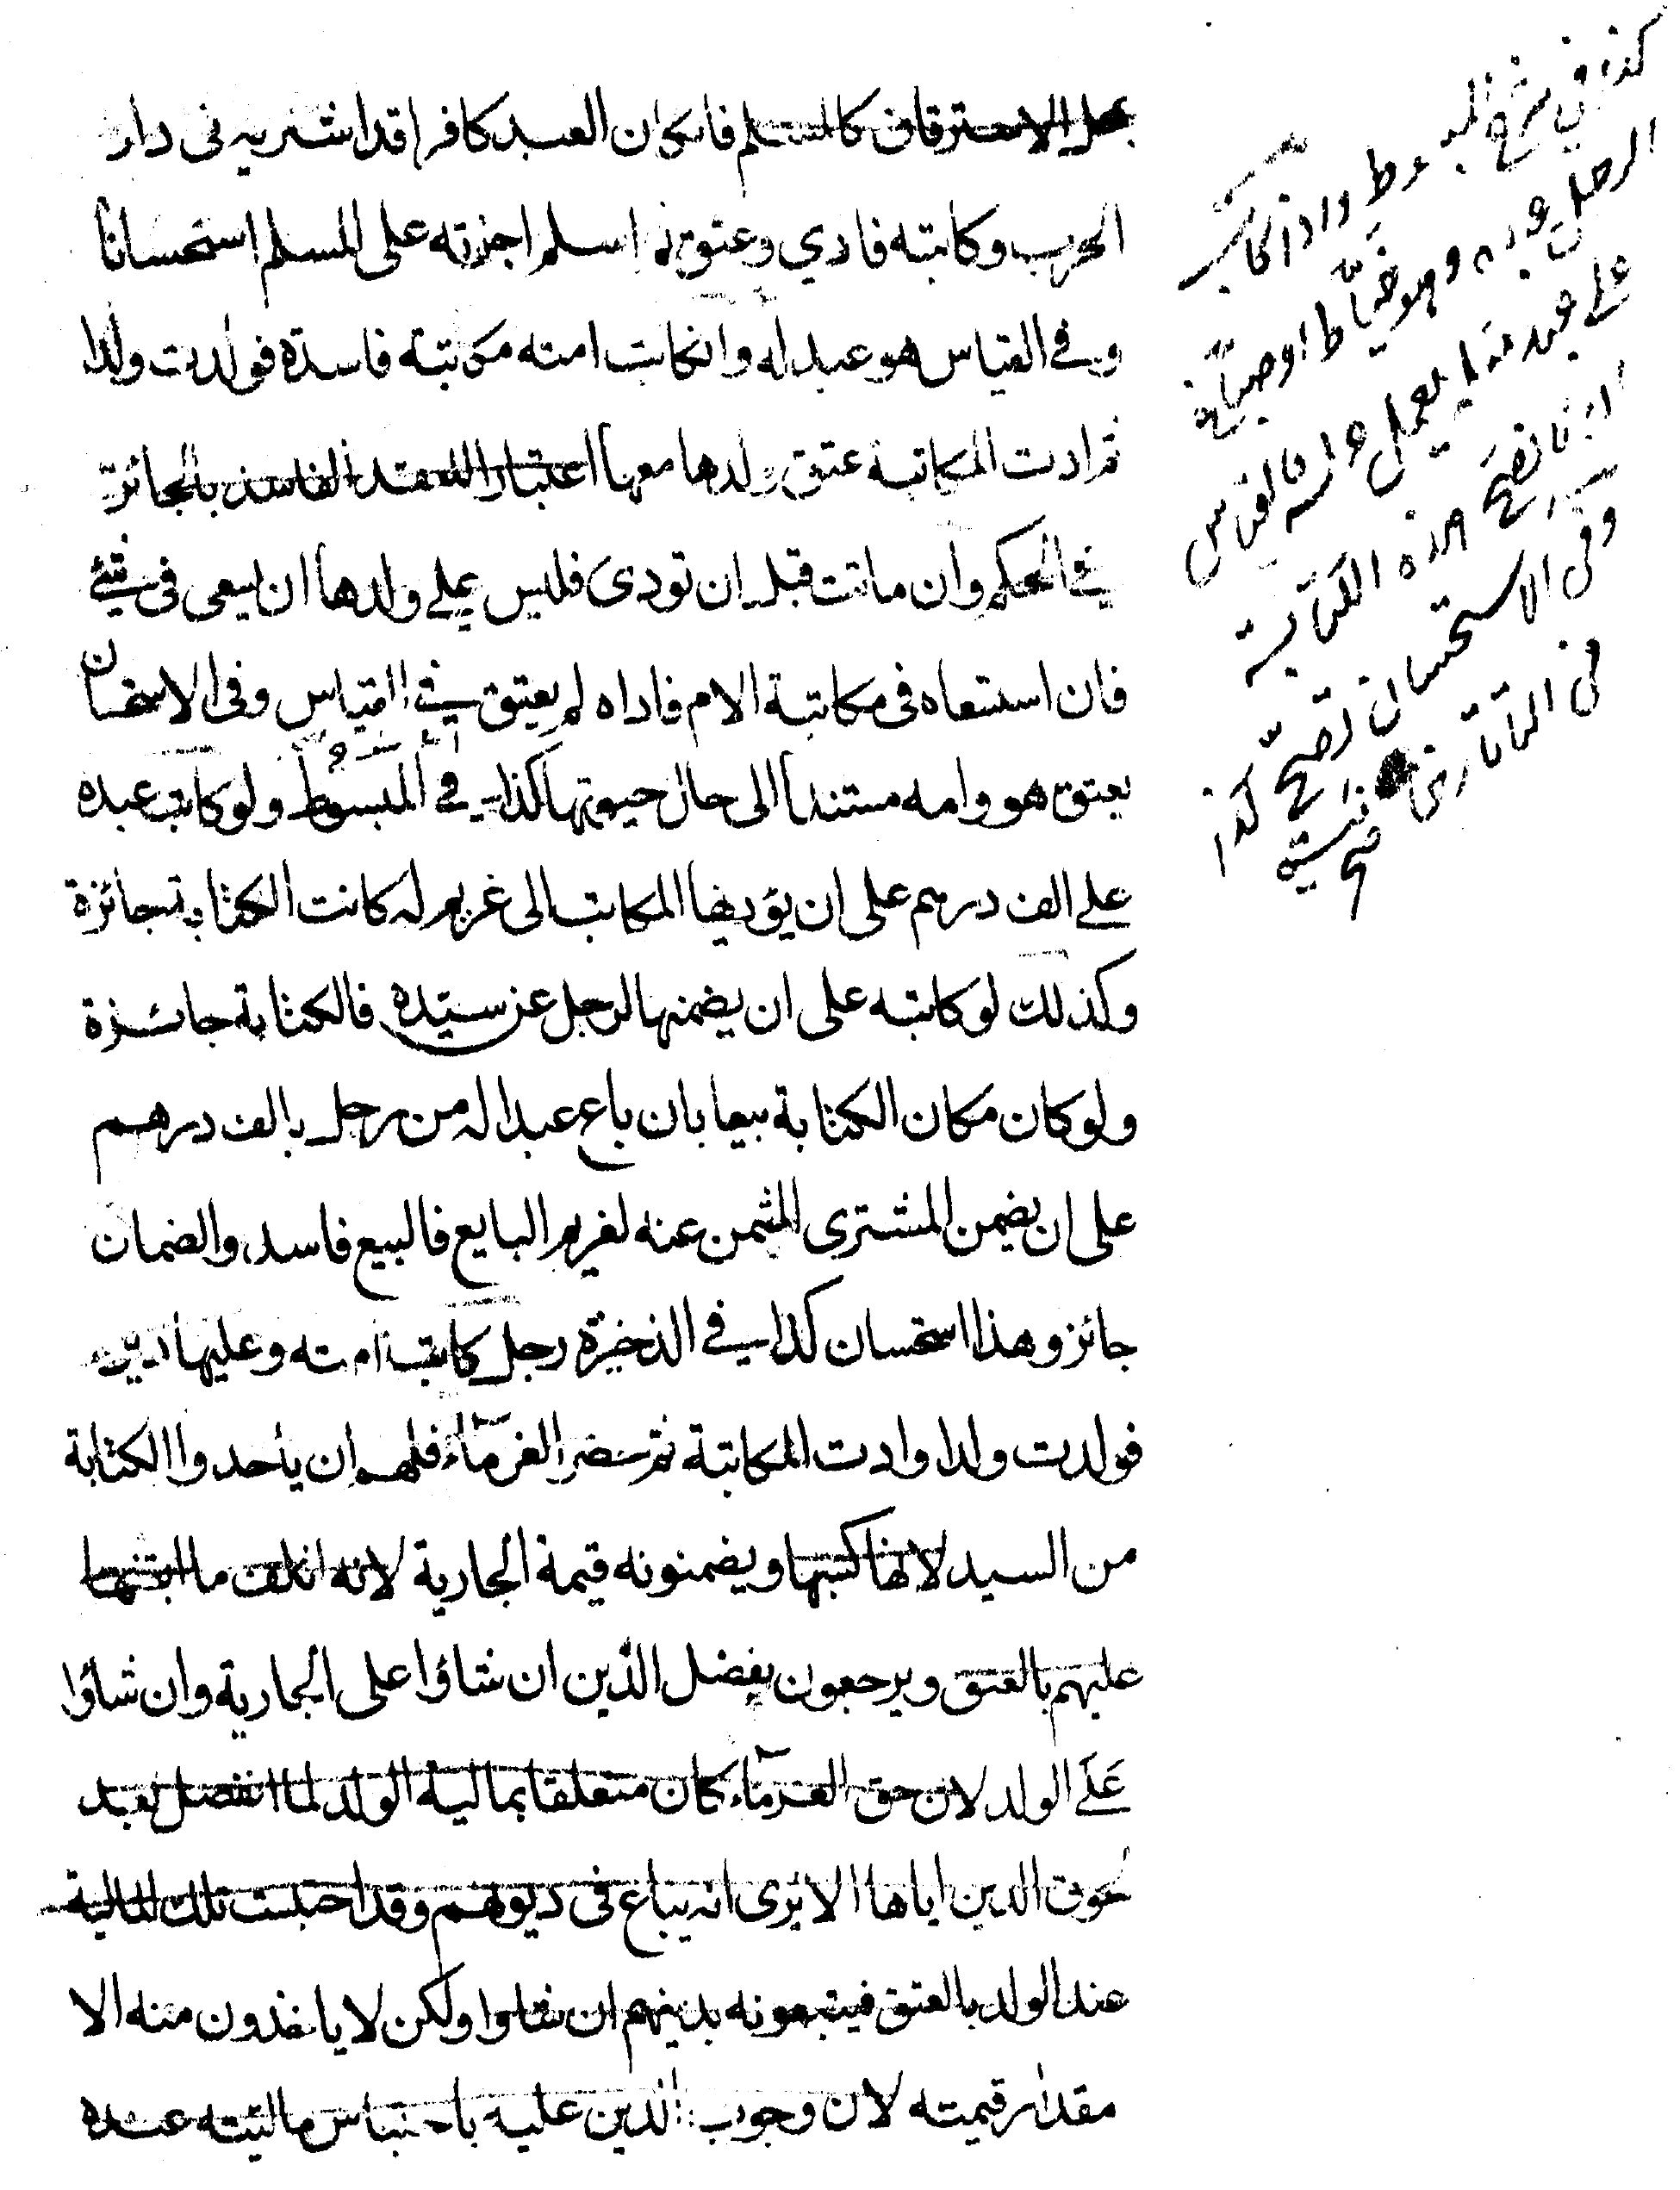 محل الاسترقاق كالمسلم فان كان العبد كافرا قد اشتريه فى دار
الحرب وكاتبه فادي وعتق ثم اسلم اجزته على المسلم استحسانا
وفي القياس هو عبد له وان كاتب امته مكاتبة فاسدة فولدت ولدا
ثم ادت المكاتبة عتق ولدها معها اعتبارا للعقد الفاسد بالجائز
في الحكم وان ماتت قبل ان تودى فليس على ولدها ان يسعى فى شئ
فان استسعاه فى مكاتبة الام فاداه لم يعتق في القياس وفى الاستحسان
يعتق هو وامه مستندا الى حال حيوتها كذا في المبسوط ولو كاتب عبده
على الف درهم على ان يؤديها المكاتب الى غريم له كانت الكتابة جائزة
وكذلك لو كاتبه على ان يضمنها لرجل عن سيده فالكتابة جائزة
ولو كان مكان الكتابة بيعا بان باع عبدا له من رجل بالف درهم
على ان يضمن المشترى الثمن عنه لغريم البايع فالبيع فاسد والضمان
جائز وهذا استحسان كذا في الذخيرة رجل كاتب امته وعليها دين
فولدت ولدا وادت المكاتبة ثم حضر الغرماء فلهم ان ياخذوا الكتابة
من السيد لانها كسبها ويضمنونه قيمة الجارية لانه اتلف ماليتها
عليهم بالعتق ويرجعون بفضل الدين ان شاؤا على الجارية وان شاؤا
على الولد لان حق الغرماء كان متعلقا بمالية الولد لما انفصل بعد
لحوق الدين اياها الا يرى انه يباع فى ديونهم وقد احتبست تلك المالية
عند الولد بالعتق فيتبعونه بدينهم ان شاوا ولكن لا ياخذون منه الا
مقدار قيمته لان وجوب الدين عليه باحتباس ماليته عنده
كذا في شرح المبسوط واذا كاتب
الرجل عبده وهو خياط او صباغ
على عبد مثله يعمل عمله فالقياس
ان لا تصح هذه الكتابة
وفى الاستحسان تصح كذا
فى التاتارخانية
صح